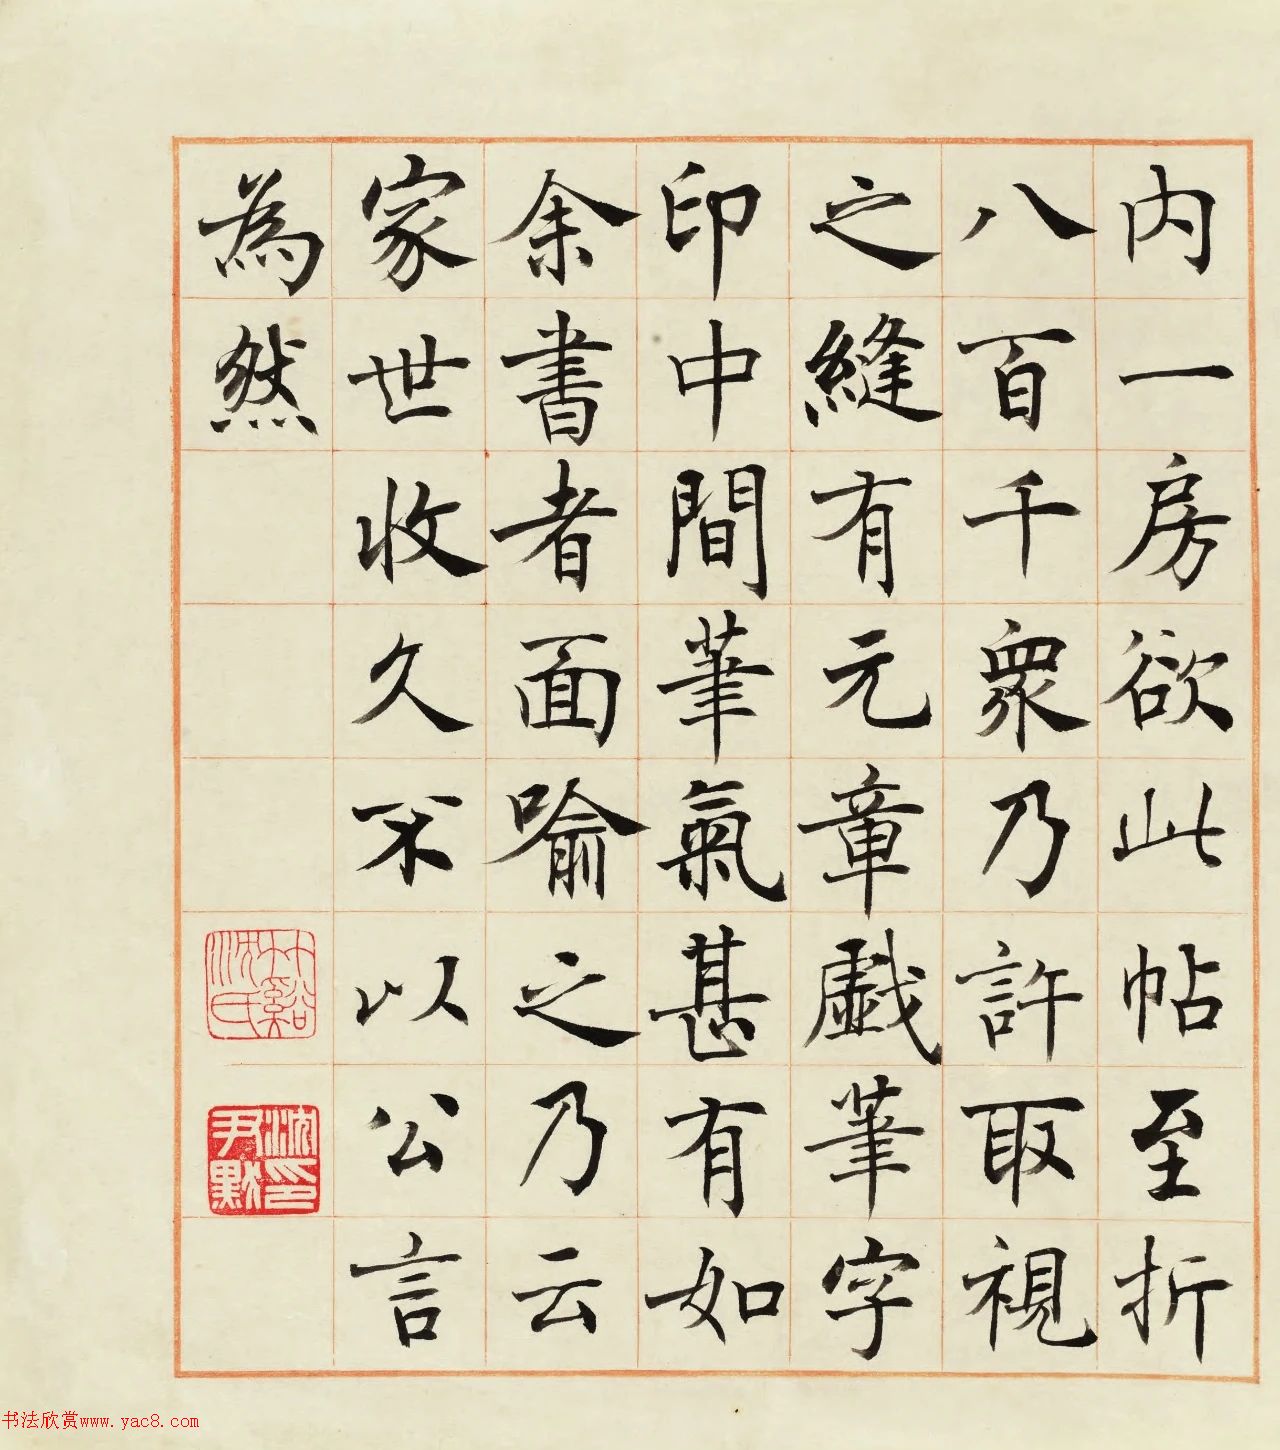 内一房欲此帖至折
八百千眾乃許取視
之縫有元章戲筆字
印中間筆氣甚有如
余書者面喻之乃云
家世收久不以公言
為然
竹谿沈氏
沈尹默印
书法欣赏www.yac8.com